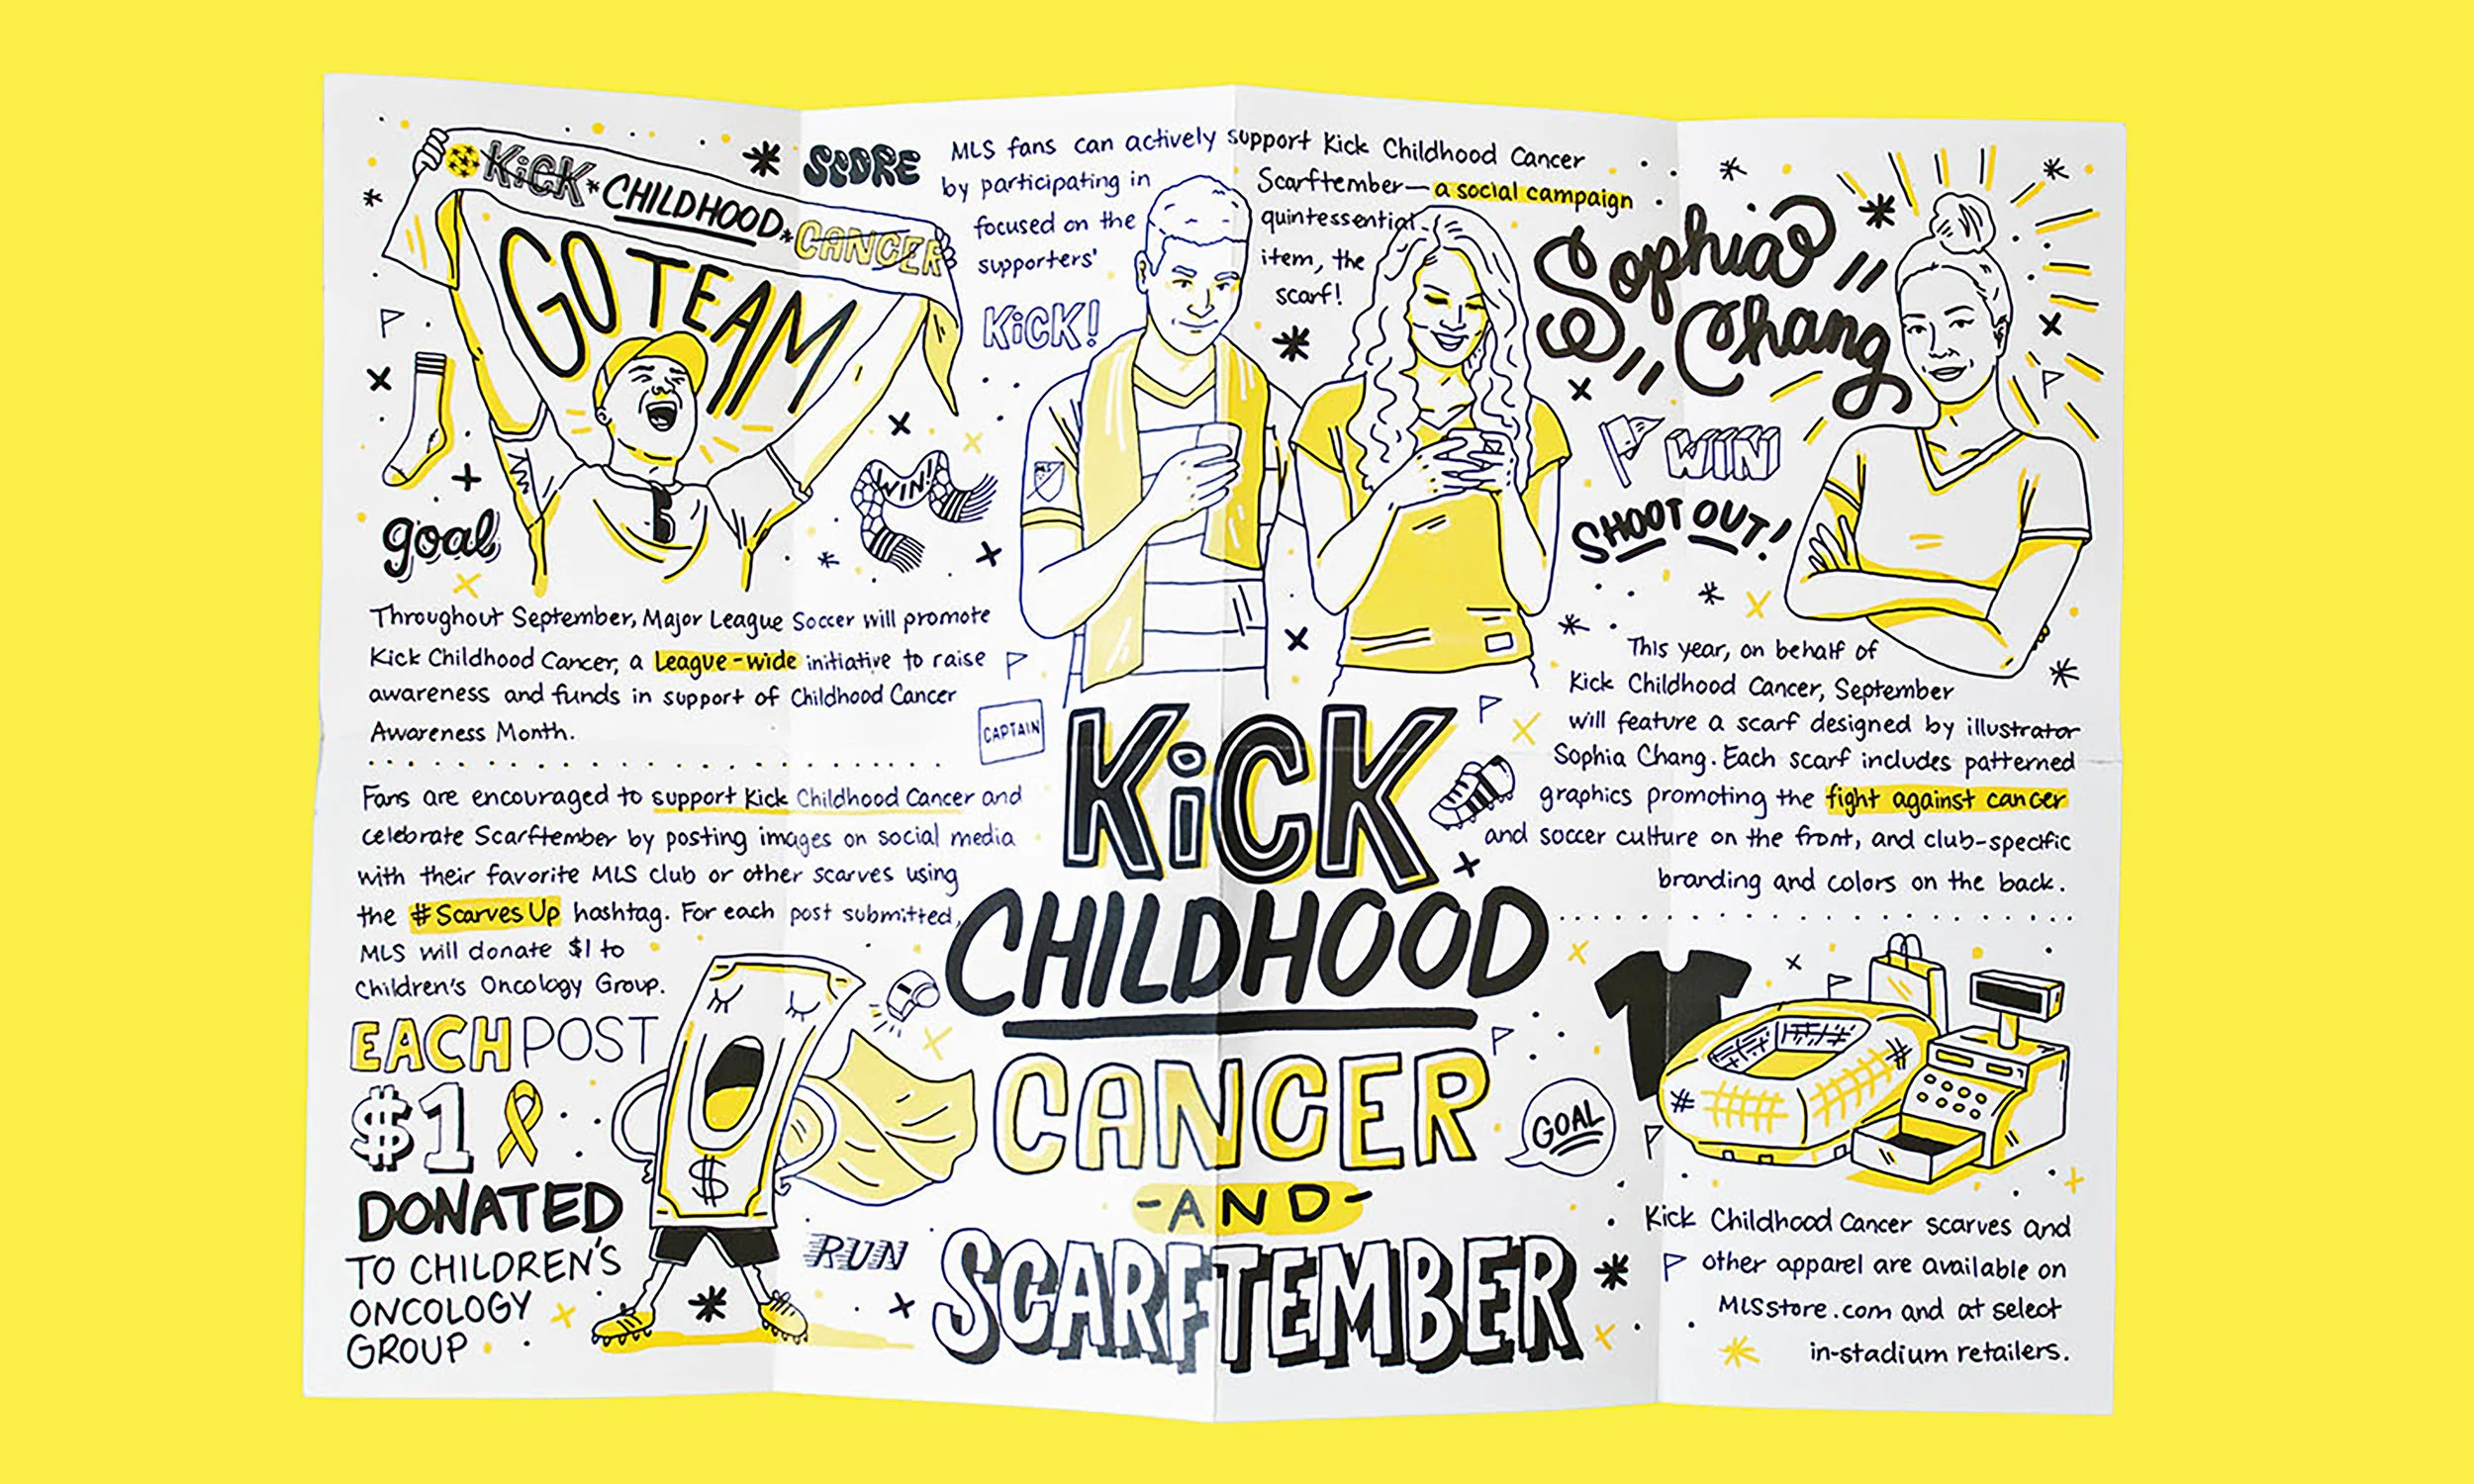 KiCK * CHILDHOOD * CANCER
GO TEAM
goal
WIN!
SCORE
MLS fans can actively support Kick Childhood Cancer
by participating in Scarftember— a social campaign
focused on the quintessential
supporters' item, the
scarf!
KiCK!
MLS
Sophia
Chang
WIN
SHOOT OUT!
Throughout September, Major League Soccer will promote
Kick Childhood Cancer, a League-wide initiative to raise
awareness and funds in support of Childhood Cancer
Awareness Month.
Fans are encouraged to support Kick Childhood Cancer and
celebrate Scarftember by posting images on social media
with their favorite MLS club or other scarves using
the #ScarvesUp hashtag. For each post submitted,
MLS will donate $1 to
Children's Oncology Group.
EACH POST
$1
DONATED
TO CHILDREN'S
ONCOLOGY
GROUP
$
RUN
CAPTAIN
KiCK
CHILDHOOD
CANCER
-AND-
SCARFTEMBER
GOAL
This year, on behalf of
Kick Childhood Cancer, September
will feature a scarf designed by illustrator
Sophia Chang. Each scarf includes patterned
graphics promoting the fight against cancer
and soccer culture on the front, and club-specific
branding and colors on the back.
Kick Childhood Cancer scarves and
other apparel are available on
MLSstore.com and at select
in-stadium retailers.